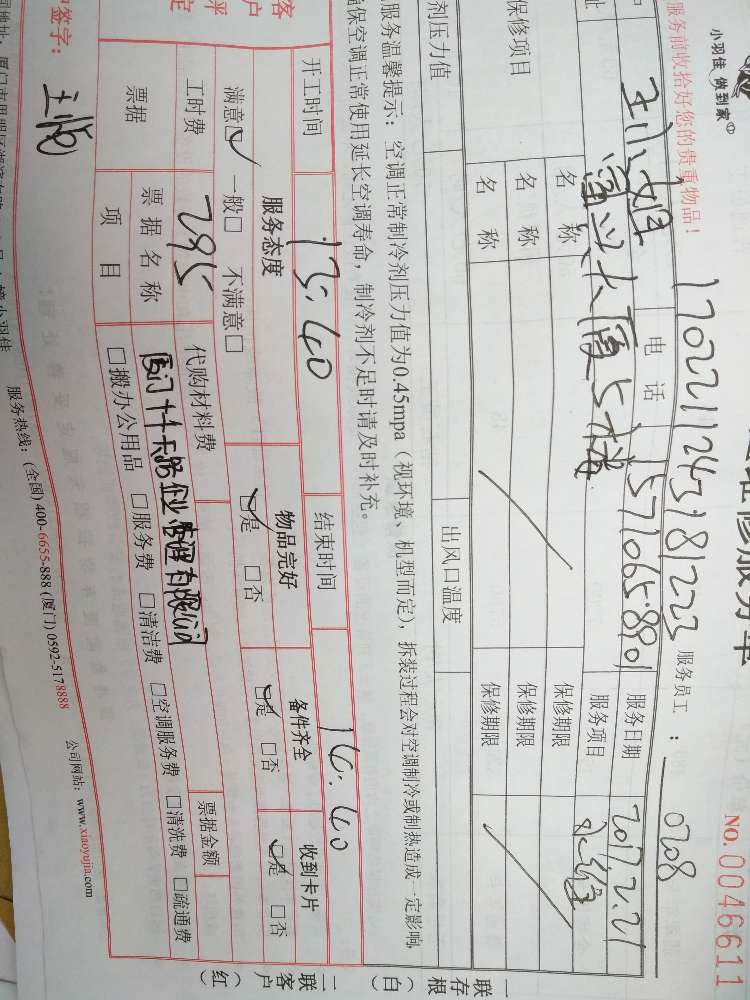 小羽佳 做到家
NO. 0046611
服务前收拾好您的贵重物品！
1702211243181223
服务员工：0208
王小姐
电话
15710658901
服务日期
2017.2.21
宝兴大厦5楼
服务项目
保修项目
名称
保修期限
名称
保修期限
名称
保修期限
剂压力值
出风口温度
服务温馨提示：空调正常制冷剂压力值为0.45mpa（视环境、机型而定），拆装过程会对空调制冷或制热造成一定影响，
确保空调正常使用延长空调寿命，制冷剂不足时请及时补充。
开工时间
13:40
结束时间
16:40
客户评定
服务态度
物品完好
备件齐全
收到卡片
满意☑ 一般□ 不满意□
☑是 □否
☑是 □否
☑是 □否
工时费
295
代购材料费
票据金额
票据
票据名称
项目
□搬办公用品 □服务费 □清洁费 □空调服务费 □清洗费 □疏通费
签字：
服务热线：(全国) 400-6655-888 (厦门) 0592-5178888
公司网站：www.xiaoyujia.com
一联存根（白）
二联客户（红）